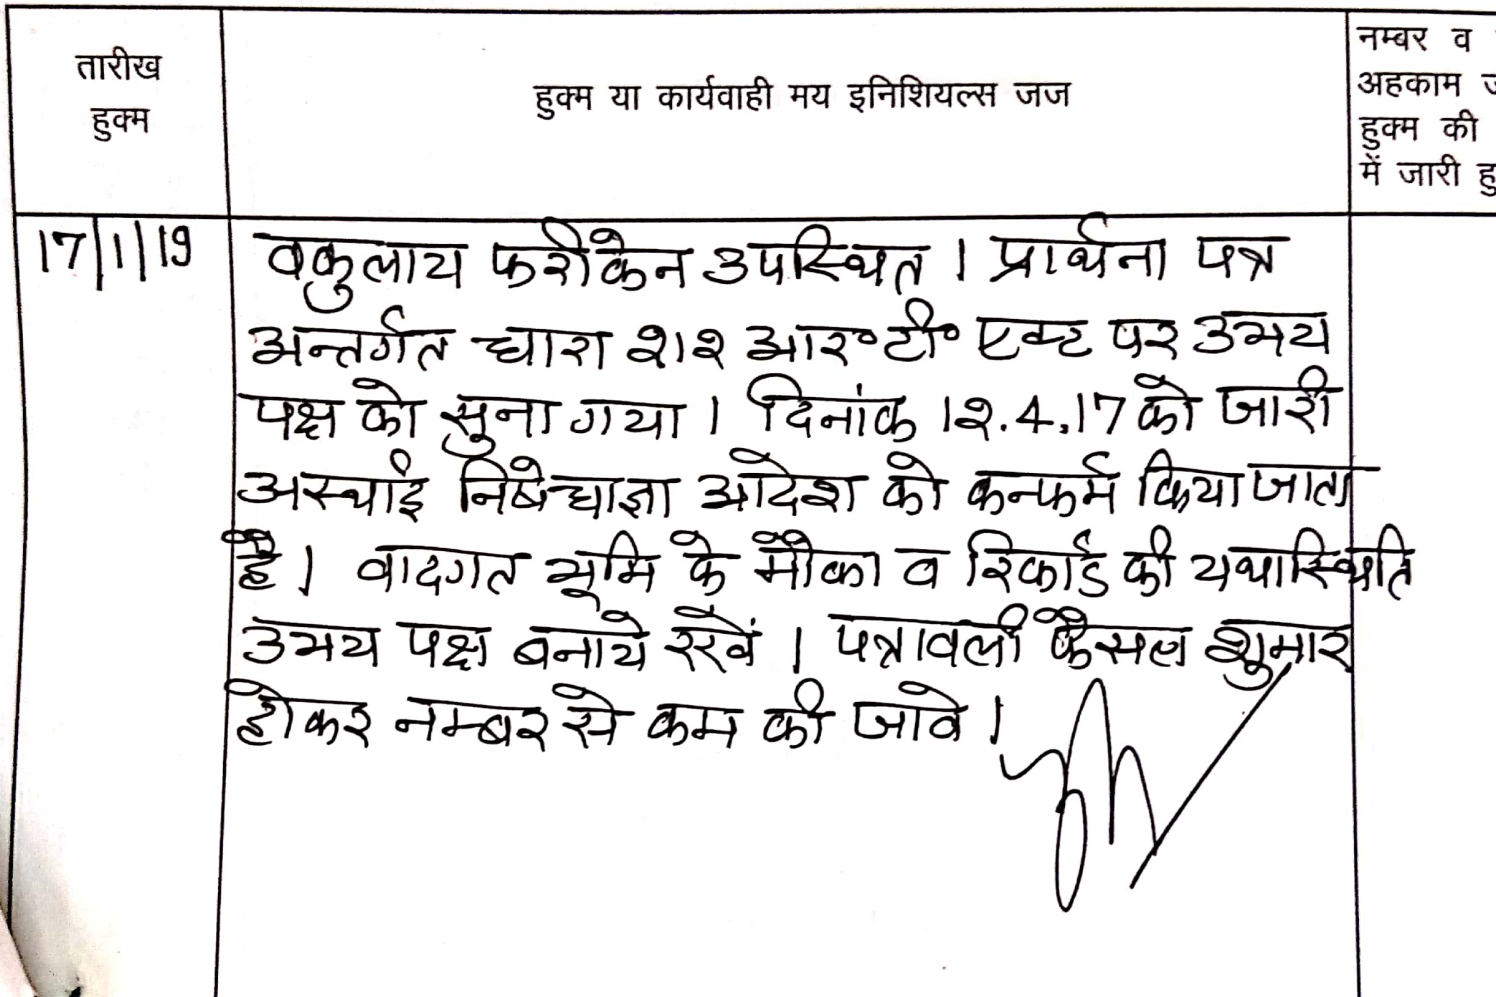 तारीख
हुक्म
हुक्म या कार्यवाही मय इनिशियल्स जज
नम्बर व
अहकाम
हुक्म की
में जारी
17/1/19
वकुलाय फरीकेन उपस्थित । प्रार्थना पत्र
अन्तर्गत धारा २१२ आर॰टी॰ एक्ट पर उभय
पक्ष को सुना गया । दिनांक 1२.4.17 को जारी
अस्थाई निषेधाज्ञा आदेश को कन्फर्म किया जाता
है । वादगत भूमि के मौका व रिकार्ड की यथास्थिति
उभय पक्ष बनाये रखें । पत्रावली फैसल शुमार
होकर नम्बर से कम की जावे ।